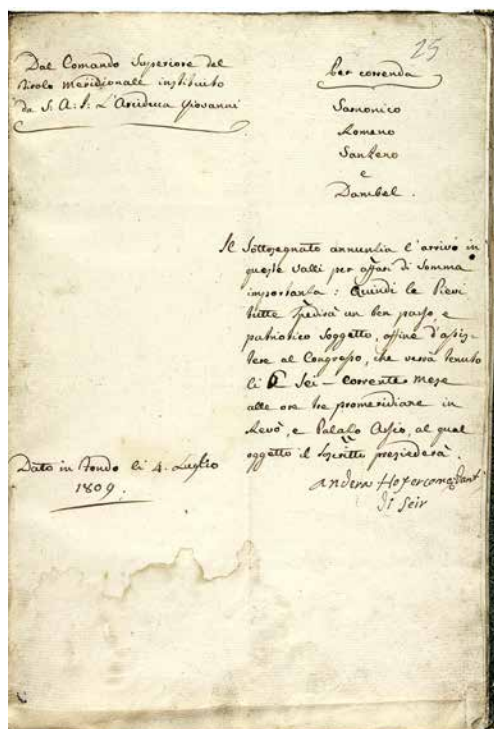 25
Dal Comando Superiore del
Tirolo Meridionale instituito
da S. A. I. L'Arciduca Giovanni
per correnda
Sarnonico
Romeno
Sanzeno
e
Dambel.
Il Sottosegnato annunzia l'arrivo in
queste Valli per affari di somma
importanza: Quindi le Pievi
tutte spedirà un ben
patriotico soggetto, affine d'assis-
tere al Congresso, che verrà tenuto
li 6 Sei - corrente mese
alle ore tre promeridiane in
Revò, e Palazo
oggetto il presiederà.
Dato in Fondo li 4. Luglio
1809.
Andere Hofer
di